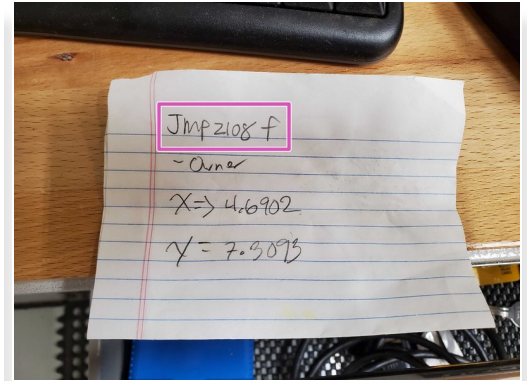 Jmp2108 f
- Owner
X=> 4.6902
Y = 7.3093